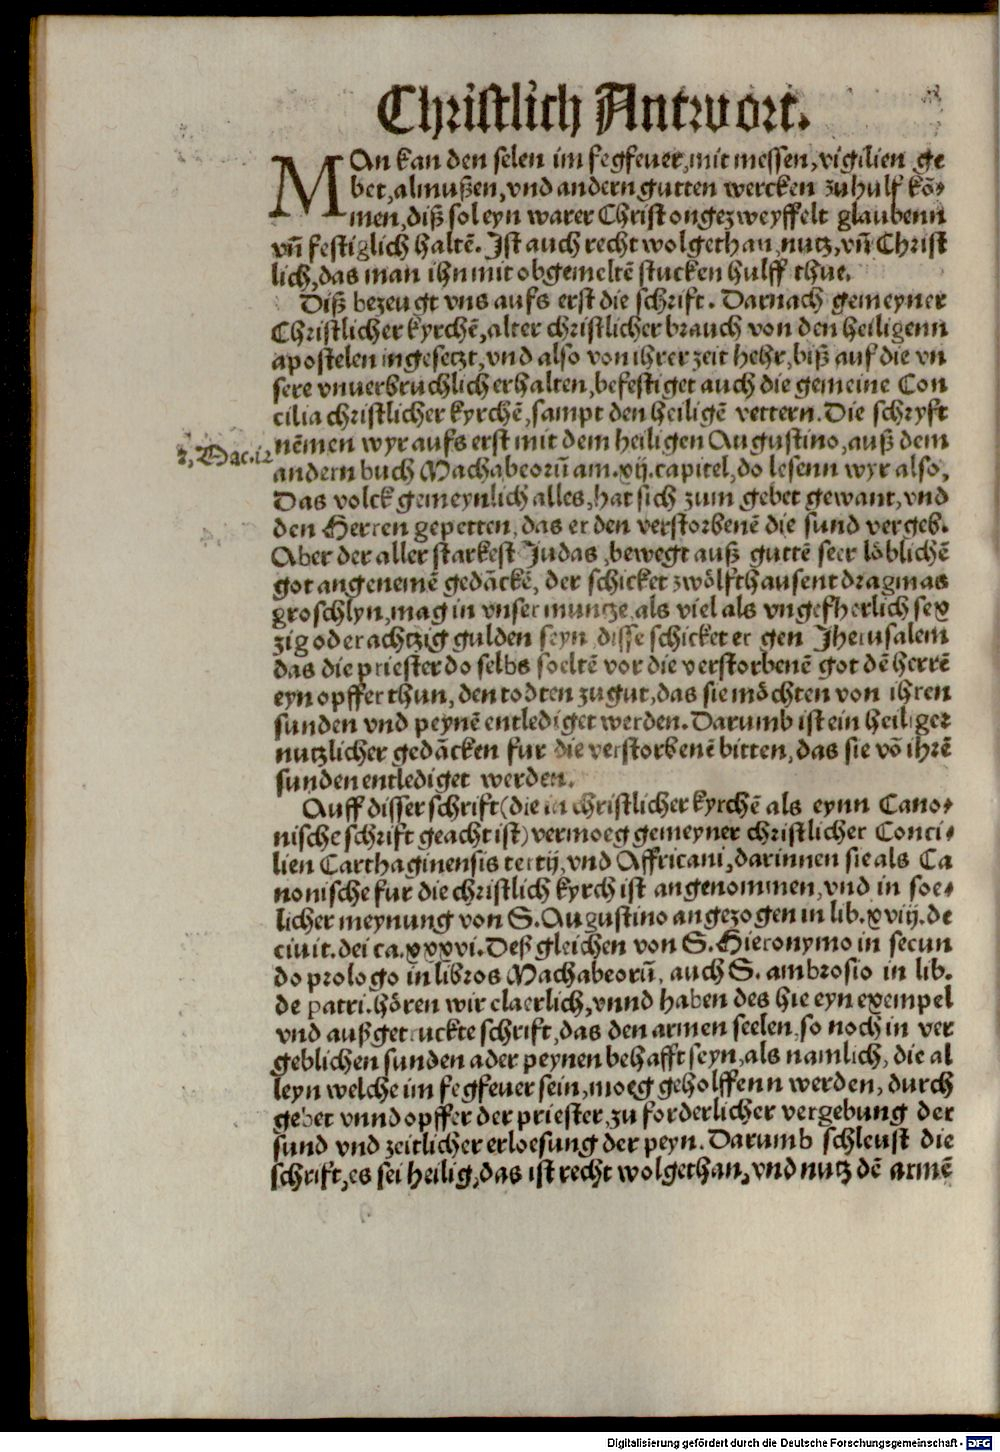 Christlich Antwort.
MAn kan den selen im fegfeuer, mit messen, vigilien ge
bet, almußen, vnd andern gutten wercken zuhulf kõ⸗
men, diß sol eyn warer Christ ongezweyffelt glaubenn
vñ festiglich haltẽ. Ist auch recht wolgethan, nutz, vñ Christ
lich, das man ihn mit obgemeltẽ stucken hulff thue.
Diß bezeugt vns aufs erst die schrift. Darnach gemeyner
Christlicher kyrchẽ, alter christlicher brauch von den heiligenn
apostelen ingesetzt, vnd also von ihrer zeit hehr, biß auf die vn
sere vnuerbruchlich erhalten, befestiget auch die gemeine Con
cilia christlicher kyrchẽ, sampt den heiligẽ vettern. Die schryft
2, Mac. 12
nẽmen wyr aufs erst mit dem heiligen Augustino, auß dem
andern buch Machabeorũ am .xij. capitel, do lesenn wyr also,
Das volck gemeynlich alles, hat sich zum gebet gewant, vnd
den Herren gepetten, das er den verstorbenẽ die sund vergeb.
Aber der aller starkest Judas, bewegt auß guttẽ seer löblichẽ
got angenemẽ gedãckẽ, der schicket zwölfthausent dragmas
groschlyn, mag in vnser muntze als viel als vngefherlich sex
zig oder achtzig gulden seyn disse schicket er gen Jherusalem
das die priester do selbs soeltẽ vor die verstorbenẽ got dẽ herrẽ
eyn opffer thun, den todten zu gut, das sie möchten von ihren
sunden vnd peynẽ entlediget werden. Darumb ist ein heiliger
nutzlicher gedãcken fur die verstorbenẽ bitten, das sie võ ihrẽ
sunden entlediget werden.
Auff disser schrift (die in christlicher kyrchẽ als eynn Cano⸗
nische schrift geacht ist) vermoeg gemeyner christlicher Conci⸗
lien Carthaginensis tertij, vnd Affricani, darinnen sie als Ca
nonische fur die christlich kyrch ist angenommen, vnd in soe⸗
licher meynung von S. Augustino angezogen in lib. xviij. de
ciuit. dei ca. xxxvi. Deß gleichen von S. Hieronymo in secun
do prologo in libros Machabeorũ, auch S. ambrosio in lib.
de patri. hören wir claerlich, vnnd haben des hie eyn exempel
vnd außgetruckte schrift, das den armen seelen, so noch in ver
geblichen sunden ader peynen behafft seyn, als namlich, die al
leyn welche im fegfeuer sein, moeg geholffenn werden, durch
gebet vnnd opffer der priester, zu forderlicher vergebung der
sund vnd zeitlicher erloesung der peyn. Darumb schleust die
schrift, es sei heilig, das ist recht wolgethan, vnd nutz dẽ armẽ
Digitalisierung gefördert durch die Deutsche Forschungsgemeinschaft - DFG